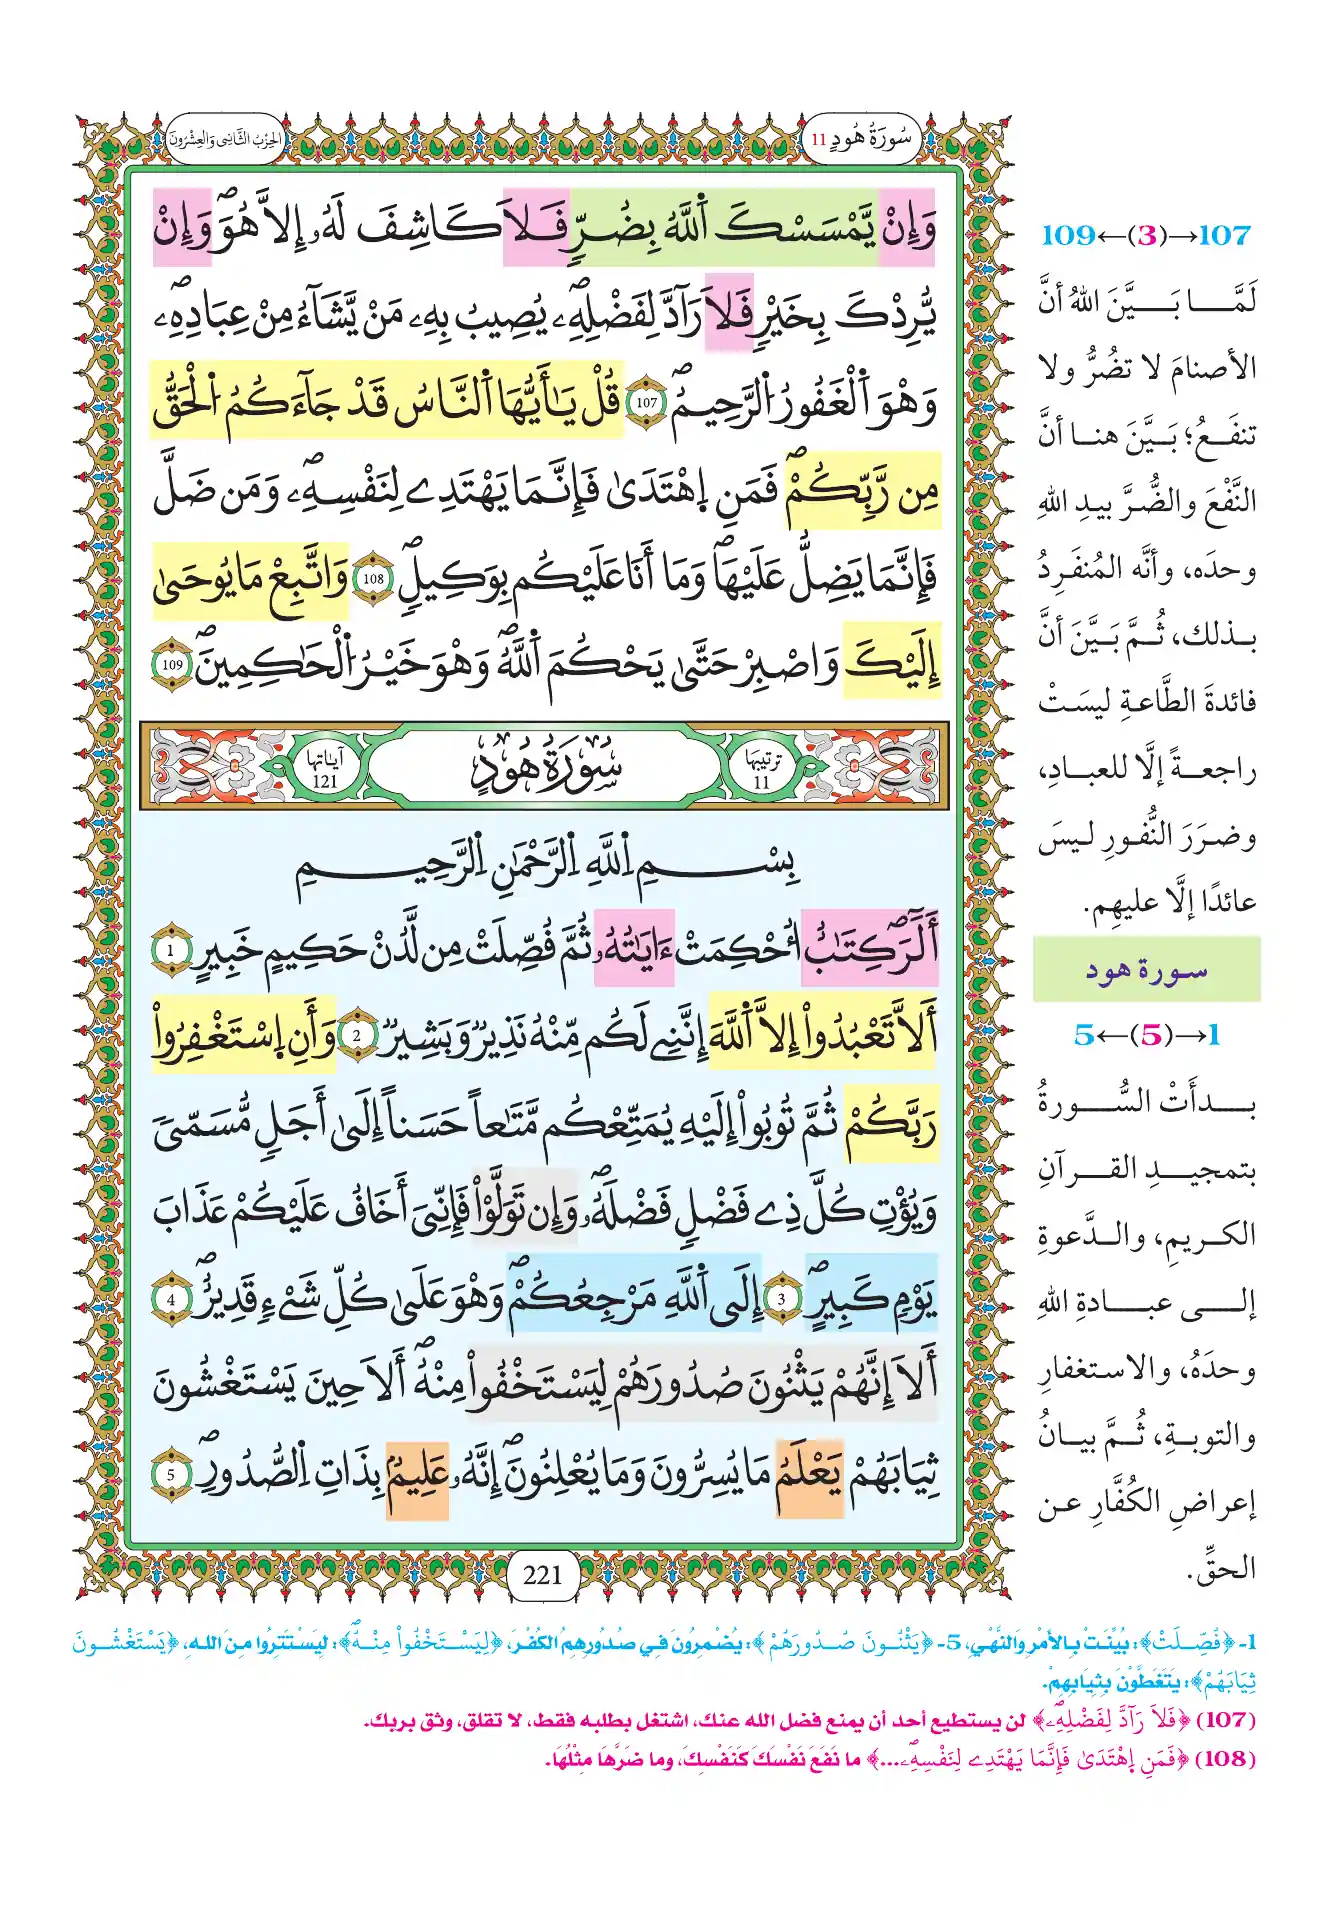 سُورَةُ هُودٍ 11
الحِزْبُ الثَّانِي وَالعِشْرُونَ
وَإِنْ يَّمْسَسْكَ اَ۬للَّهُ بِضُرّٖ فَلَا كَاشِفَ لَهُۥٓ إِلَّا هُوَۖ وَإِنْ
يُّرِدْكَ بِخَيْرٖ فَلَا رَآدَّ لِفَضْلِهِۦۖ يُصِيبُ بِهِۦ مَنْ يَّشَآءُ مِنْ عِبَادِهِۦۖ
وَهُوَ اَ۬لْغَفُورُ اُ۬لرَّحِيمُۖ 107 قُلْ يَٰٓأَيُّهَا اَ۬لنَّاسُ قَدْ جَآءَكُمُ اُ۬لْحَقُّ
مِن رَّبِّكُمْۖ فَمَنِ اِ۪هْتَدَىٰ فَإِنَّمَا يَهْتَدِے لِنَفْسِهِۦۖ وَمَن ضَلَّ
فَإِنَّمَا يَضِلُّ عَلَيْهَاۖ وَمَآ أَنَا عَلَيْكُم بِوَكِيلٖۖ 108 وَاتَّبِعْ مَا يُوحَىٰٓ
إِلَيْكَ وَاصْبِرْ حَتَّىٰ يَحْكُمَ اَ۬للَّهُۖ وَهُوَ خَيْرُ اُ۬لْحَٰكِمِينَۖ 109
ترتيبها 11
سُورَةُ هُودٍ
آياتها 121
بِسْمِ اِ۬للَّهِ اِ۬لرَّحْمَٰنِ اِ۬لرَّحِيمِ
أَلَٓرَۖ كِتَٰبٌ أُحْكِمَتْ ءَايَٰتُهُۥ ثُمَّ فُصِّلَتْ مِن لَّدُنْ حَكِيمٍ خَبِيرٍ 1
أَلَّا تَعْبُدُوٓاْ إِلَّا اَ۬للَّهَ إِنَّنِے لَكُم مِّنْهُ نَذِيرٞ وَبَشِيرٞ 2 وَأَنِ اِ۪سْتَغْفِرُواْ
رَبَّكُمْ ثُمَّ تُوبُوٓاْ إِلَيْهِ يُمَتِّعْكُم مَّتَٰعاً حَسَناً إِلَىٰٓ أَجَلٖ مُّسَمّىٗ
وَيُؤْتِ كُلَّ ذِے فَضْلٖ فَضْلَهُۥۖ وَإِن تَوَلَّوْاْ فَإِنِّيَ أَخَافُ عَلَيْكُمْ عَذَابَ
يَوْمٖ كَبِيرٍۖ 3 إِلَى اَ۬للَّهِ مَرْجِعُكُمْۖ وَهُوَ عَلَىٰ كُلِّ شَےْءٖ قَدِيرٌۖ 4
أَلَآ إِنَّهُمْ يَثْنُونَ صُدُورَهُمْ لِيَسْتَخْفُواْ مِنْهُۖ أَلَا حِينَ يَسْتَغْشُونَ
ثِيَابَهُمْ يَعْلَمُ مَا يُسِرُّونَ وَمَا يُعْلِنُونَۖ إِنَّهُۥ عَلِيمُۢ بِذَاتِ اِ۬لصُّدُورِۖ 5
221
107→(3)←109
لَمَّا بَيَّنَ اللهُ أنَّ
الأصنامَ لا تضُرُّ ولا
تنفَعُ؛ بَيَّنَ هنا أنَّ
النَّفْعَ والضُّرَّ بيدِ اللهِ
وحدَه، وأنَّه المُنفَرِدُ
بذلك، ثُمَّ بَيَّنَ أنَّ
فائدةَ الطَّاعةِ ليسَتْ
راجعةً إلَّا للعبادِ،
وضرَرَ النُّفورِ ليسَ
عائدًا إلَّا عليهِم.
سورة هود
1→(5)←5
بدأَتْ السُّورةُ
بتمجيدِ القرآنِ
الكريمِ، والدَّعوةِ
إلى عبادةِ اللهِ
وحدَهُ، والاستغفارِ
والتوبةِ، ثُمَّ بيانُ
إعراضِ الكُفَّارِ عن
الحقِّ.
1- ﴿فُصِّلَتْ﴾: بُيِّنَتْ بِالأَمْرِ وَالنَّهْيِ، 5- ﴿يَثْنُونَ صُدُورَهُمْ﴾: يُضْمِرُونَ فِي صُدُورِهِمُ الكُفْرَ، ﴿لِيَسْتَخْفُواْ مِنْهُۖ﴾: لِيَسْتَتِرُوا مِنَ اللهِ، ﴿يَسْتَغْشُونَ
ثِيَابَهُمْ﴾: يَتَغَطَّوْنَ بِثِيَابِهِمْ.
(107) ﴿فَلَا رَآدَّ لِفَضْلِهِۦۖ﴾ لن يستطيع أحد أن يمنع فضل الله عنك، اشتغل بطلبه فقط، لا تقلق، وثق بربك.
(108) ﴿فَمَنِ اِ۪هْتَدَىٰ فَإِنَّمَا يَهْتَدِے لِنَفْسِهِۦۖ...﴾ ما نَفَعَ نَفْسَكَ كَنَفْسِكَ، وما ضَرَّهَا مِثْلُهَا.